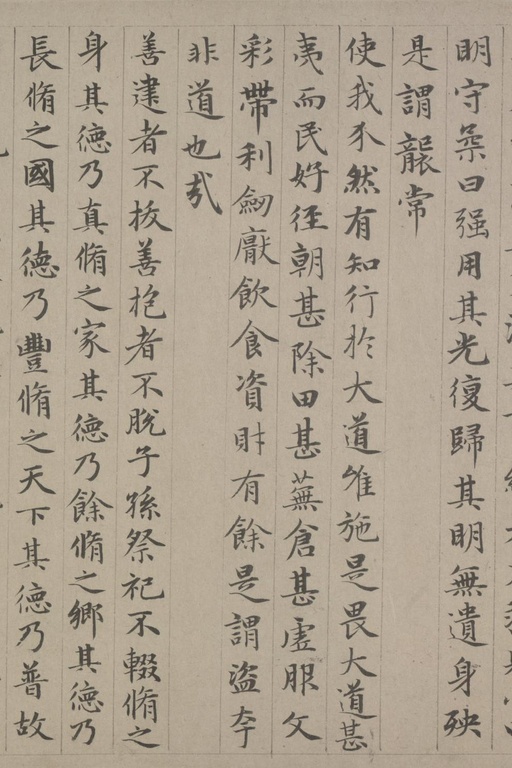 明守柔曰强用其光復歸其明無遺身殃
是謂襲常
使我介然有知行於大道唯施是畏大道甚
夷而民好徑朝甚除田甚蕪倉甚虚服文
彩帶利劒厭飲食資財有餘是謂盗夸
非道也哉
善建者不拔善抱者不脫子孫祭祀不輟脩之
身其德乃真脩之家其德乃餘脩之鄉其德乃
長脩之國其德乃豐脩之天下其德乃普故